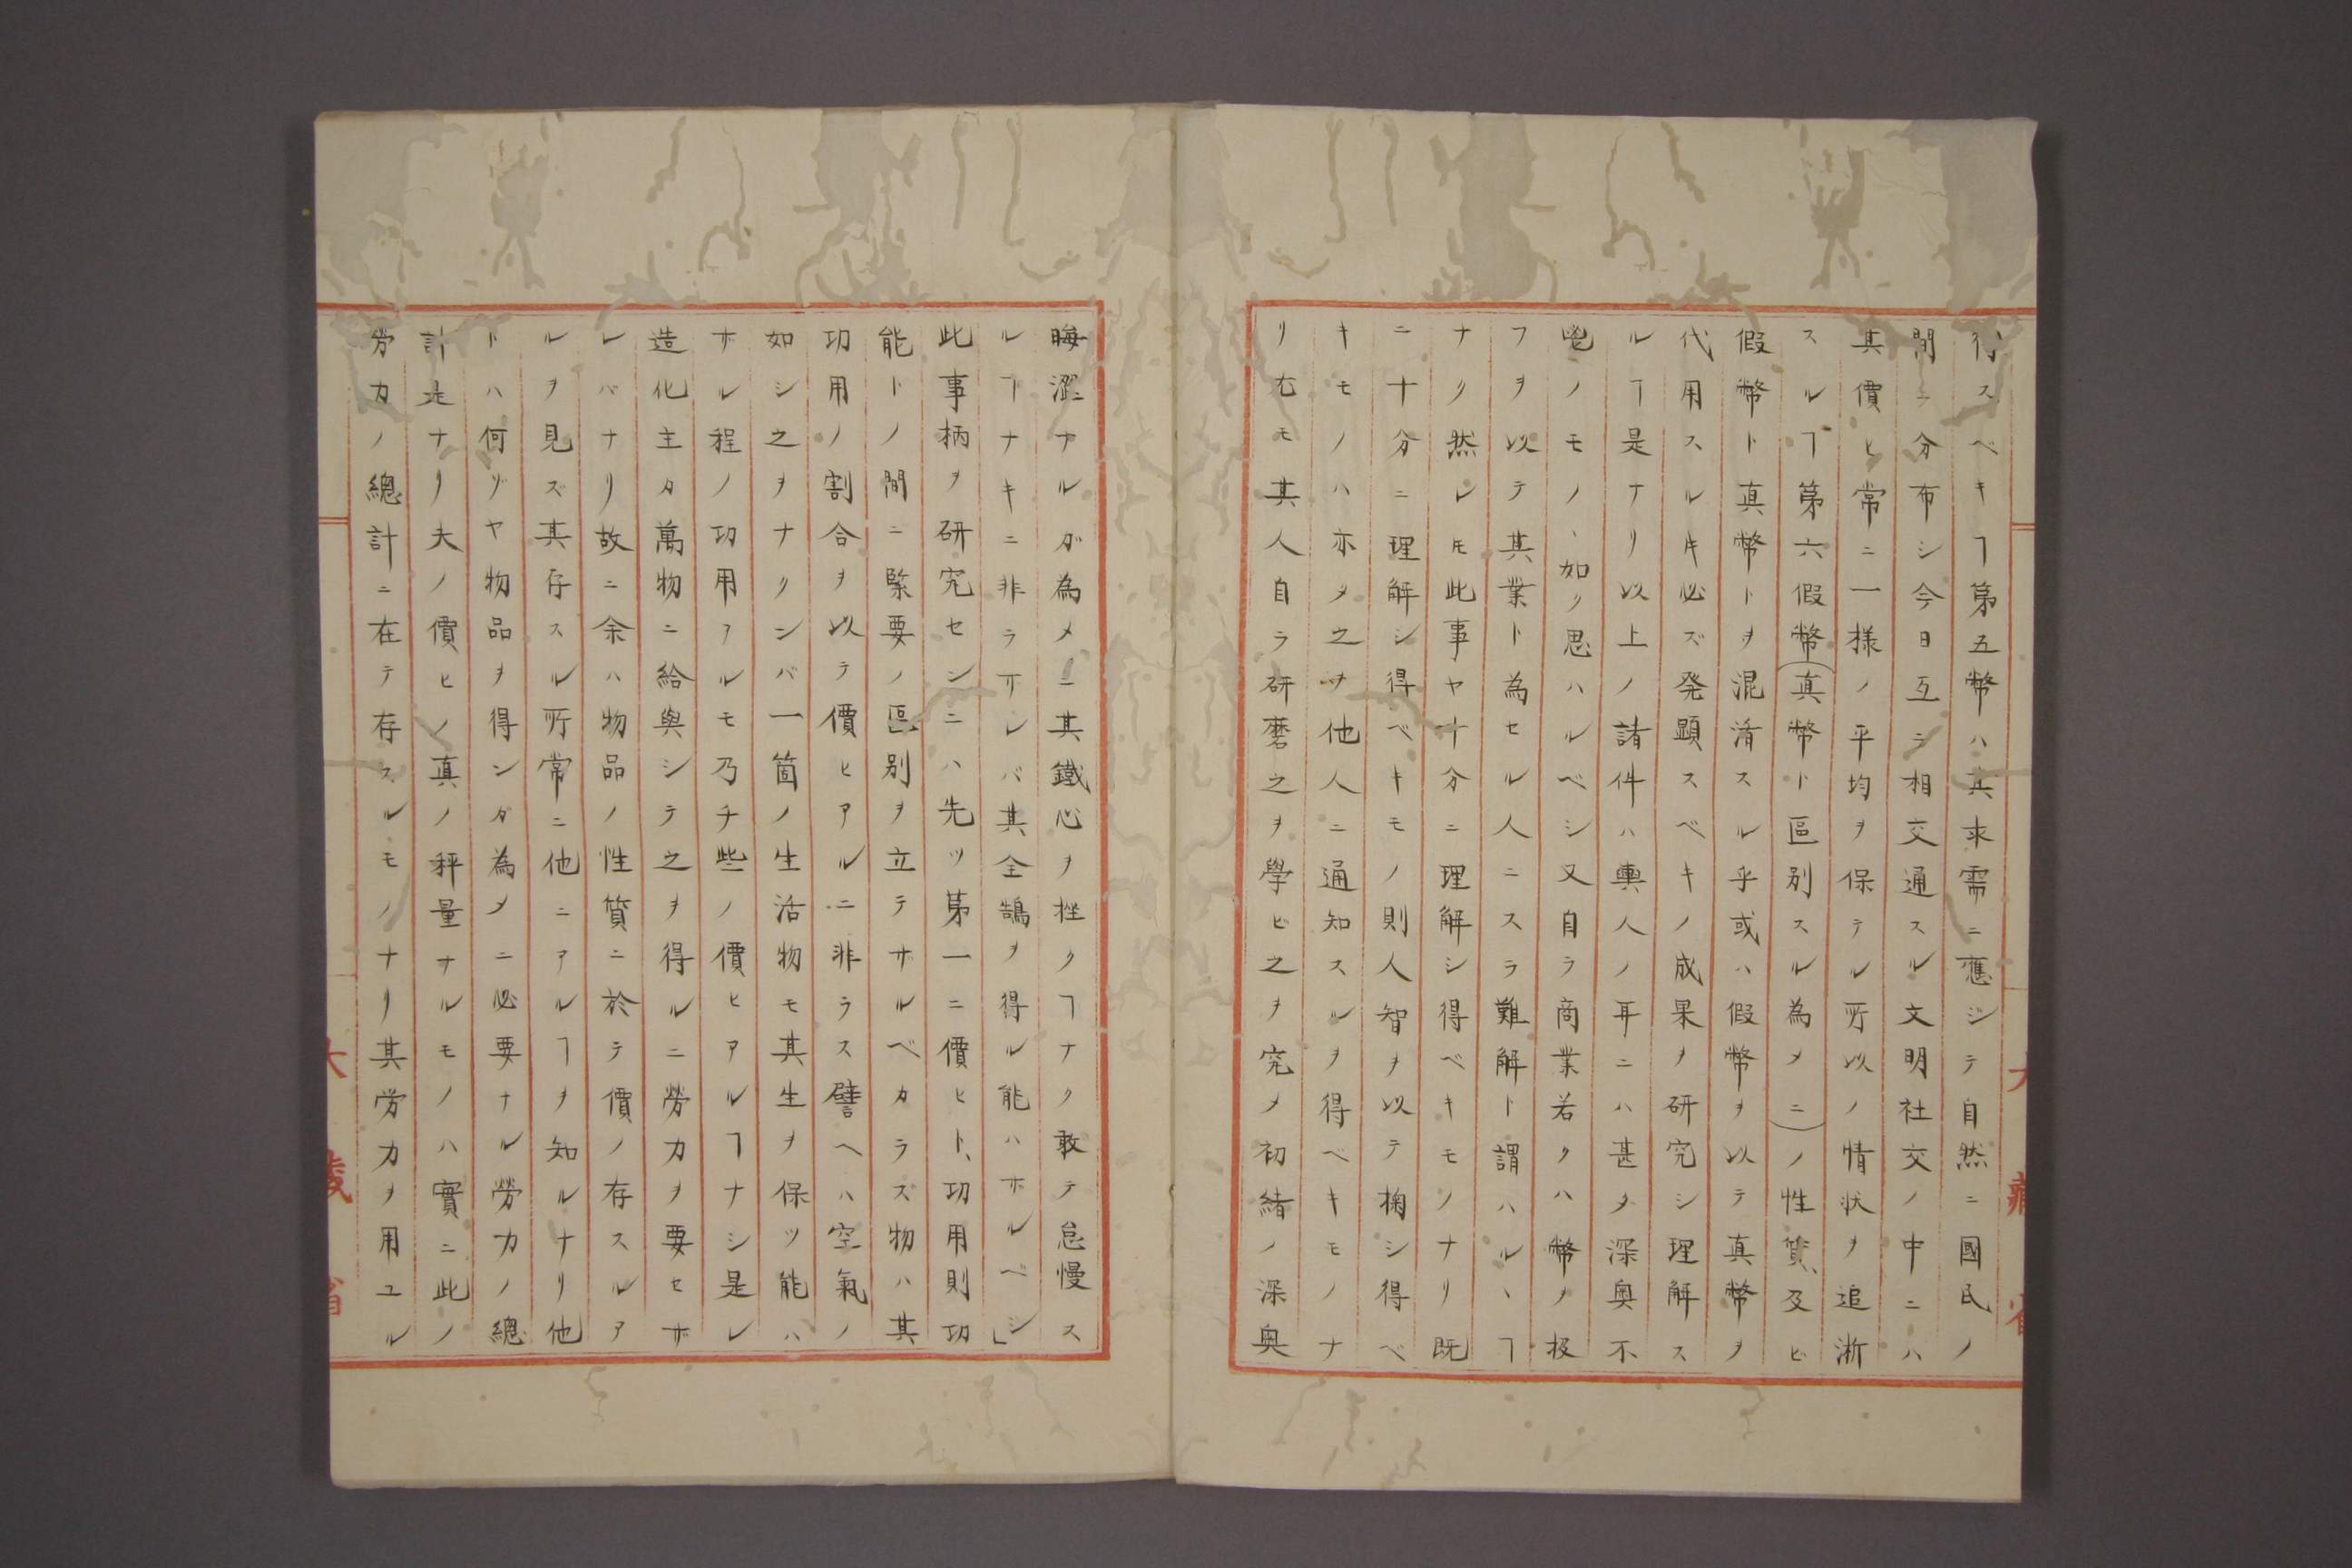 行スベキヿ第五幣ハ其求需ニ應ジテ自然ニ國民ノ
間ニ分布シ今日互ニ相交通スル文明社交ノ中ニハ
其價ヒ常ニ一様ノ平均ヲ保テル所以ノ情状ヲ追淅
スルヿ第六假幣(真幣ト區別スル為メニ)ノ性質、及ビ
假幣ト真幣トヲ混淆スル乎或ハ假幣ヲ以テ真幣ヲ
代用スルキ必ズ発顕スベキノ成果ヲ研究シ理解ス
ルヿ是ナリ以上ノ諸件ハ輿人ノ耳ニハ甚タ深奥不
ノモノヽ如ク思ハルベシ又自ラ商業若クハ幣ノ扱
フヲ以テ其業ト為セル人ニスラ難解ト謂ハルヽヿ
ナク然レ𪜈此事ヤ十分ニ理解シ得ベキモノナリ既
ニ十分ニ理解シ得ベキモノ則人智ヲ以テ掬シ得ベ
キモノハ亦タ之ヲ他人ニ通知スルヲ得ベキモノナ
リ尤モ其人自ラ研磨之ヲ學ビ之ヲ究メ初緒ノ深奥
晦澀ナルガ為メニ其鐵心ヲ挫クヿナク敢テ怠慢ス
ルヿナキニ非ラザレバ其全鵠ヲ得ル能ハザルベシ」
此事柄ヲ研究センニハ先ツ第一ニ價ヒト、功用則功
能トノ間ニ緊要ノ區別ヲ立テザルベカラズ物ハ其
功用ノ割合ヲ以テ價ヒアルニ非ラス譬ヘハ空氣ノ
如シ之ヲナクンバ一箇ノ生活物モ其生ヲ保ツ能ハ
ザル程ノ功用アルモ乃チ些ノ價ヒアルヿナシ是レ
造化主タ萬物ニ給與シテ之ヲ得ルニ勞力ヲ要セザ
レバナリ故ニ余ハ物品ノ性質ニ於テ價ノ存スルア
ルヲ見ズ其存スル所常ニ他ニアルヿヲ知ルナリ他
トハ何ゾヤ物品ヲ得ンガ為メニ必要ナル勞力ノ總
計是ナリ夫ノ價ヒノ真ノ秤量ナルモノハ實ニ此ノ
労力ノ總計ニ在テ存スルモノナリ其労力ヲ用ユル
大藏省
大藏省